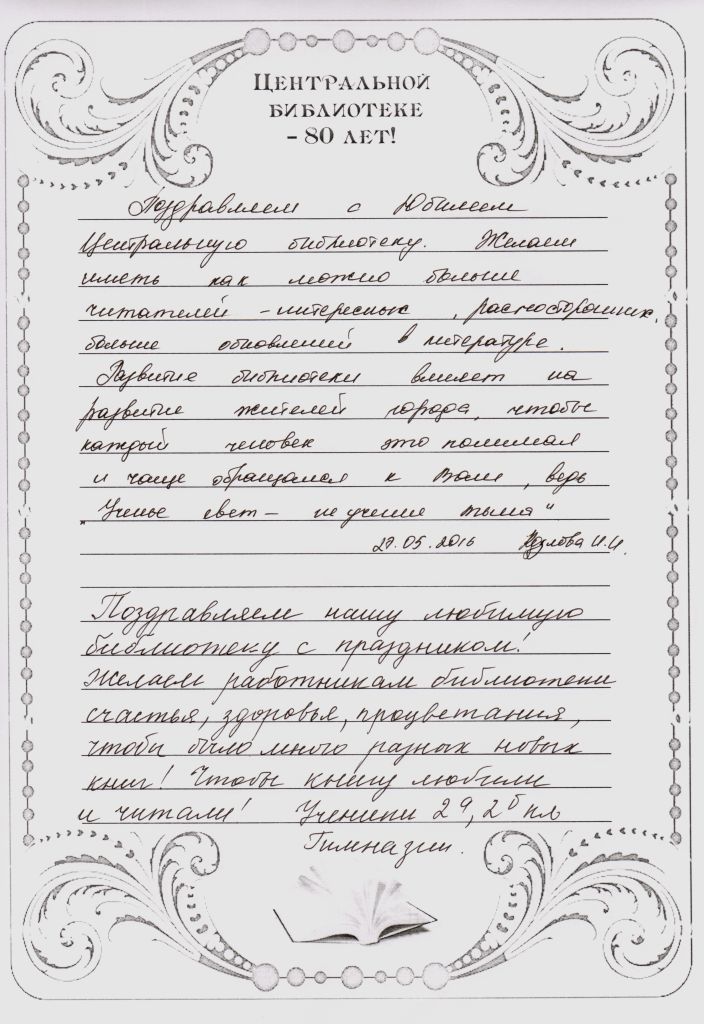 ЦЕНТРАЛЬНОЙ
БИБЛИОТЕКЕ
- 80 ЛЕТ!
Поздравляем с Юбилеем
Центральную библиотеку. Желаем
иметь как можно больше
читателей - интересных, разносторонних,
больше обновлений в литературе.
Развитие библиотеки влияет на
развитие жителей города, чтобы
каждый человек это понимал
и чаще обращался к Вам, ведь
„Ученье свет - не ученье тьма"
27.05.2016 Козлова И.И.
Поздравляем нашу любимую
библиотеку с праздником!
Желаем работникам библиотеки
счастья, здоровья, процветания,
чтобы было много разных новых
книг! Чтобы книгу любили
и читали! Ученики 2а, 2б кл
Гимназии.